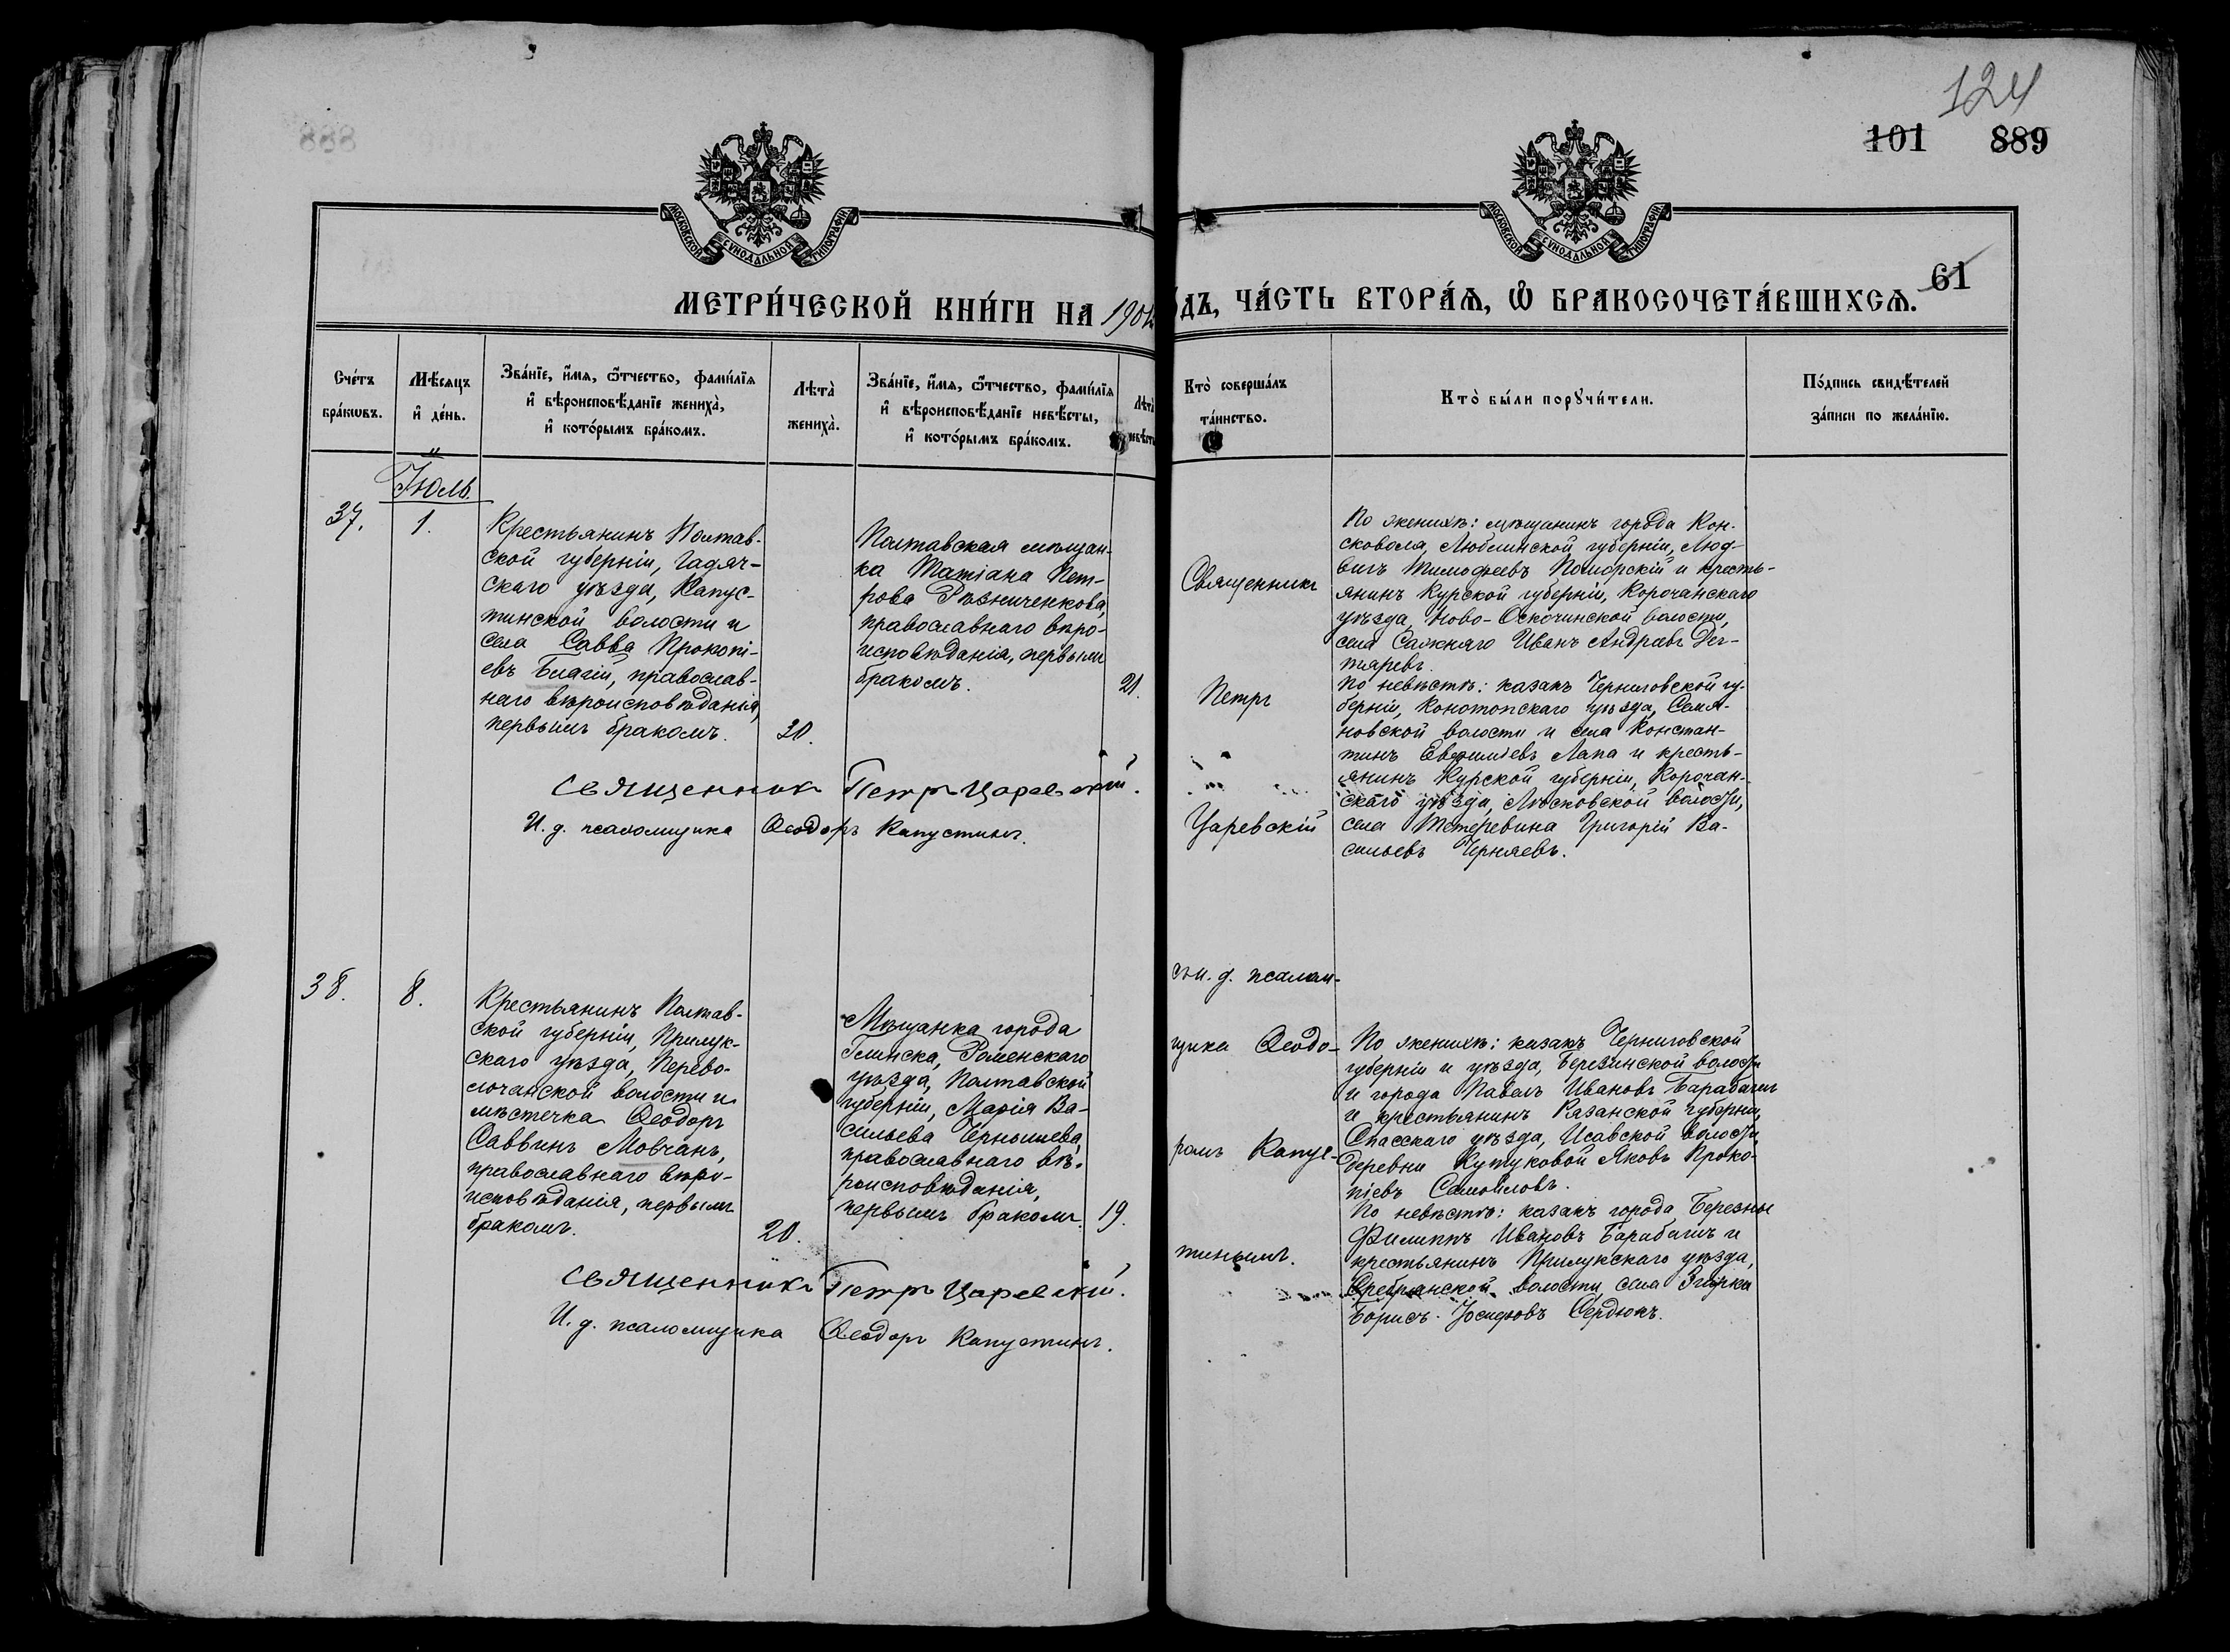 124
101 889
888
МОСКОВСКОЙ СУНОДАЛЬНОЙ ТИПОГРАФІИ
МОСКОВСКОЙ СУНОДАЛЬНОЙ ТИПОГРАФІИ
61
МЕТРИ́ЧЕСКОЙ КНИ́ГИ НА 1904
ДЪ, ЧА́СТЬ ВТОРА́Ѧ, Ѡ БРАКОСОЧЕТА́ВШИХСѦ.
Сче́тъ бра́кѡвъ.
Мѣ́сяцъ и҆ де́нь.
Зва́нїе, и҆́мя, ѻ҆́тчество, фамі́лїя
и҆ вѣроисповѣ́данїе жениха̀,
и҆ кото́рымъ бра́комъ.
Лѣта̀
жениха̀.
Зва́нїе, и҆́мя, ѻ҆́тчество, фамі́лїя
и҆ вѣроисповѣ́данїе невѣ́сты,
и҆ кото́рымъ бра́комъ.
Лѣта̀
Кто̀ соверша́лъ
та́инство.
Кто̀ бы́ли порꙋчи́тели.
По́дпись свидѣ́телей
за́писи по жела́нїю.
Іюль.
37.
1.
Крестьянинъ Полтав-
ской губерніи, Гадяч-
скаго уѣзда, Капус-
тинской волости и
села Савва Прокопі-
евъ Благій, православ-
наго вѣроисповѣданія,
первымъ бракомъ.
20.
Полтавская мѣщан-
ка Татіана Пет-
рова Рѣзниченкова,
православнаго вѣро-
исповѣданія, первымъ
бракомъ.
21.
Священникъ Петръ Царевскій.
И. д. псаломщика Ѳеодоръ Капустинъ.
Священникъ
Петръ
Царевскій
По женихѣ: мѣщанинъ города Кон-
сковоля, Люблинской губерніи, Люд-
вигъ Тимофеевъ Поморскій и кресть-
янинъ Курской губерніи, Корочанскаго
уѣзда, Ново-Оскочинской волости,
села Сажняго Иванъ Андреевъ Дег-
тяревъ.
По невѣстѣ: казакъ Черниговской гу-
берніи, Конотопскаго уѣзда, Семя-
новской волости и села Констан-
тинъ Евфиміевъ Лапа и кресть-
янинъ Курской губерніи, Корочан-
скаго уѣзда, Лѣсковской волости,
села Тетеревина Григорій Ва-
сильевъ Черняевъ.
38.
8.
Крестьянинъ Полтав-
ской губерніи, Прилук-
скаго уѣзда, Перево-
лочанской волости и
мѣстечка Ѳеодоръ
Саввинъ Мовчанъ,
православнаго вѣро-
исповѣданія, первымъ
бракомъ.
20.
Мѣщанка города
Глинска, Роменскаго
уѣзда, Полтавской
губерніи, Марія Ва-
сильева Чернышева,
православнаго вѣ-
роисповѣданія,
первымъ бракомъ.
19.
Священникъ Петръ Царевскій.
И. д. псаломщика Ѳеодоръ Капустинъ.
съ и. д. псалом-
щика Ѳеодо-
ромъ Капус-
тинымъ.
По женихѣ: казакъ Черниговской
губерніи и уѣзда, Березинской волости
и города Павелъ Ивановъ Барабашъ
и крестьянинъ Казанской губерніи,
Спасскаго уѣзда, Исавской волости
деревни Кутуковой Яковъ Проко-
піевъ Самойловъ.
По невѣстѣ: казакъ города Березны
Филиппъ Ивановъ Барабашъ и
крестьянинъ Прилукскаго уѣзда,
Сребрянской волости, села
Борисъ Іосифовъ Сердюкъ.